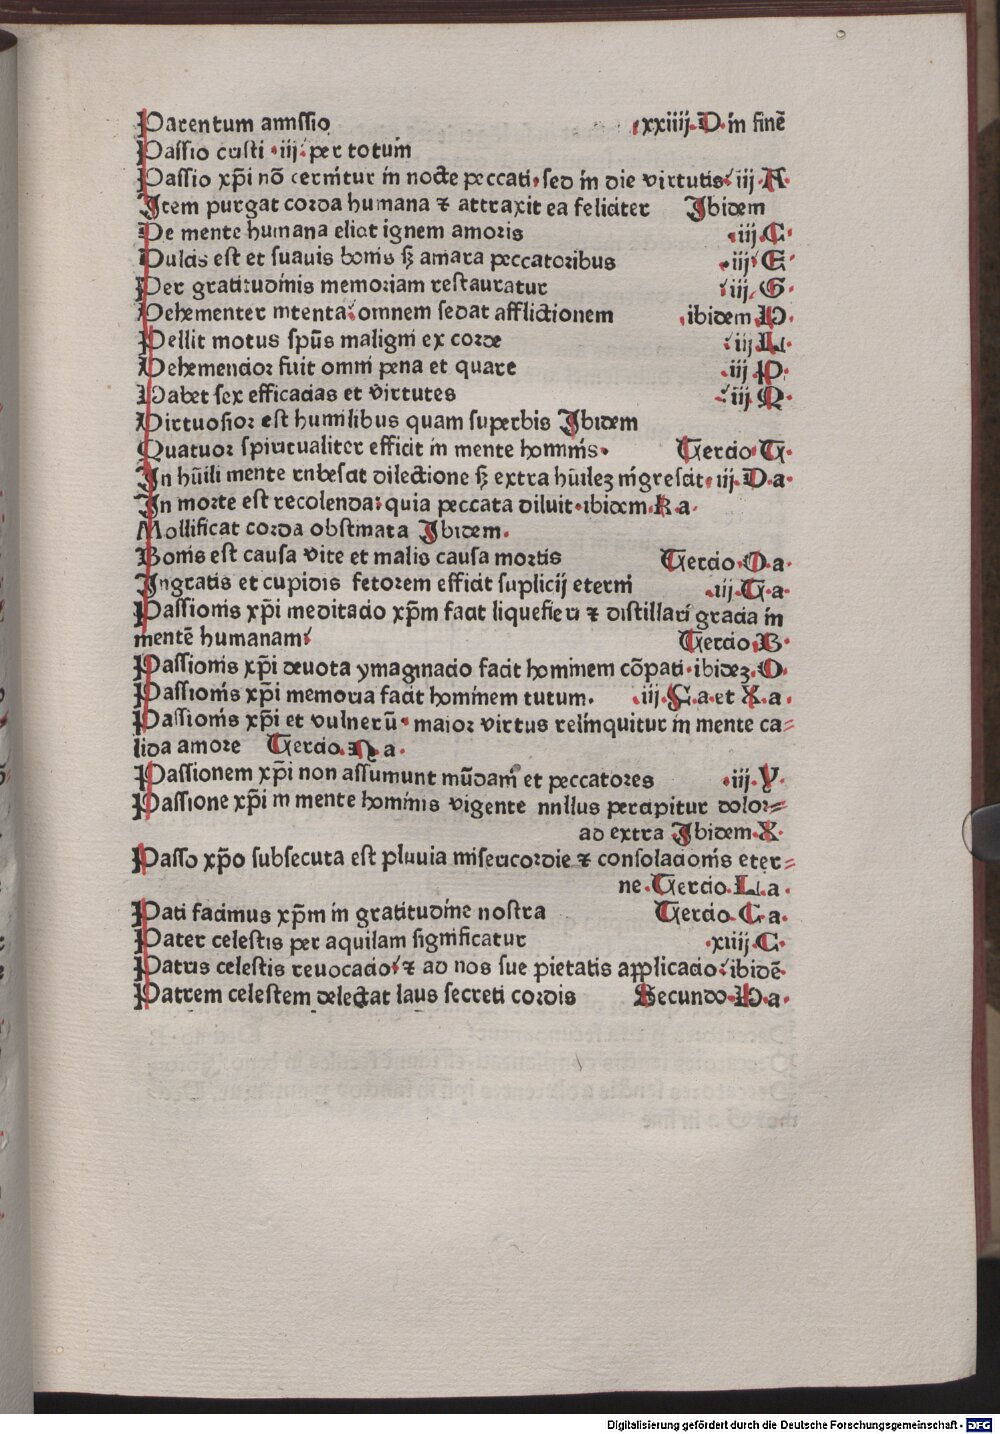 Parentum amissio xxiiij. D. in finē
Passio cristi .iij. per totum
Passio xp̄i nō cernitur in nocte peccati. sed in die virtutis iij A.
Item purgat corda humana ⁊ attraxit ea feliciter Ibidem
De mente humana elicit ignem amoris .iij. C.
Dulcis est et suauis bonis sꝫ amara peccatoribus .iij E.
Per gratitudinis memoriam restauratur iij. G.
Vehementer intenta omnem sedat afflictionem ibidem H.
Pellit motus spūs maligni ex corde iij L.
Vehemencior fuit omni pena et quare .iij P.
Habet sex efficacias et virtutes .iij. Q.
Virtuosior est humilibus quam superbis Ibidem
Quatuor spiritualiter efficit in mente hominis. Tercio T.
In hūili mente rubescit dilectione sꝫ extra hūilez nigrescit. iij. D. a.
In morte est recolenda quia peccata diluit. ibidem. K a.
Mollificat corda obstinata Ibidem.
Bonis est causa vite et malis causa mortis Tercio. O a.
Ingratis et cupidis fetorem efficit suplicij eterni .iij. T. a.
Passionis xp̄i meditacio xp̄m facit liquefieri ⁊ distillari gracia in
mentē humanam Tercio B.
Passionis xp̄i deuota ymaginacio facit hominem cōpati. ibidez. O.
Passionis xp̄i memoria facit hominem tutum. .iij. S. a. et X. a.
Passionis xp̄i et vulnerū maior virtus relinquitur in mente ca=
lida amore Tercio. N a.
Passionem xp̄i non assumunt mūdani et peccatores .iij. Y.
Passione xp̄i in mente hominis vigente nnllus percipitur dolor=
ad extra Ibidem. X.
Passo xp̄o subsecuta est pluuia misericordie ⁊ consolacionis eter=
ne. Tercio. L. a.
Pati facimus xp̄m in gratitudine nostra Tercio. C a.
Pater celestis per aquilam significatur .xiiij. C.
Patris celestis reuocacio ⁊ ad nos sue pietatis applicacio ibidē.
Patrem celestem delectat laus secreti cordis Secundo. H. a.
Digitalisierung gefördert durch die Deutsche Forschungsgemeinschaft - DFG